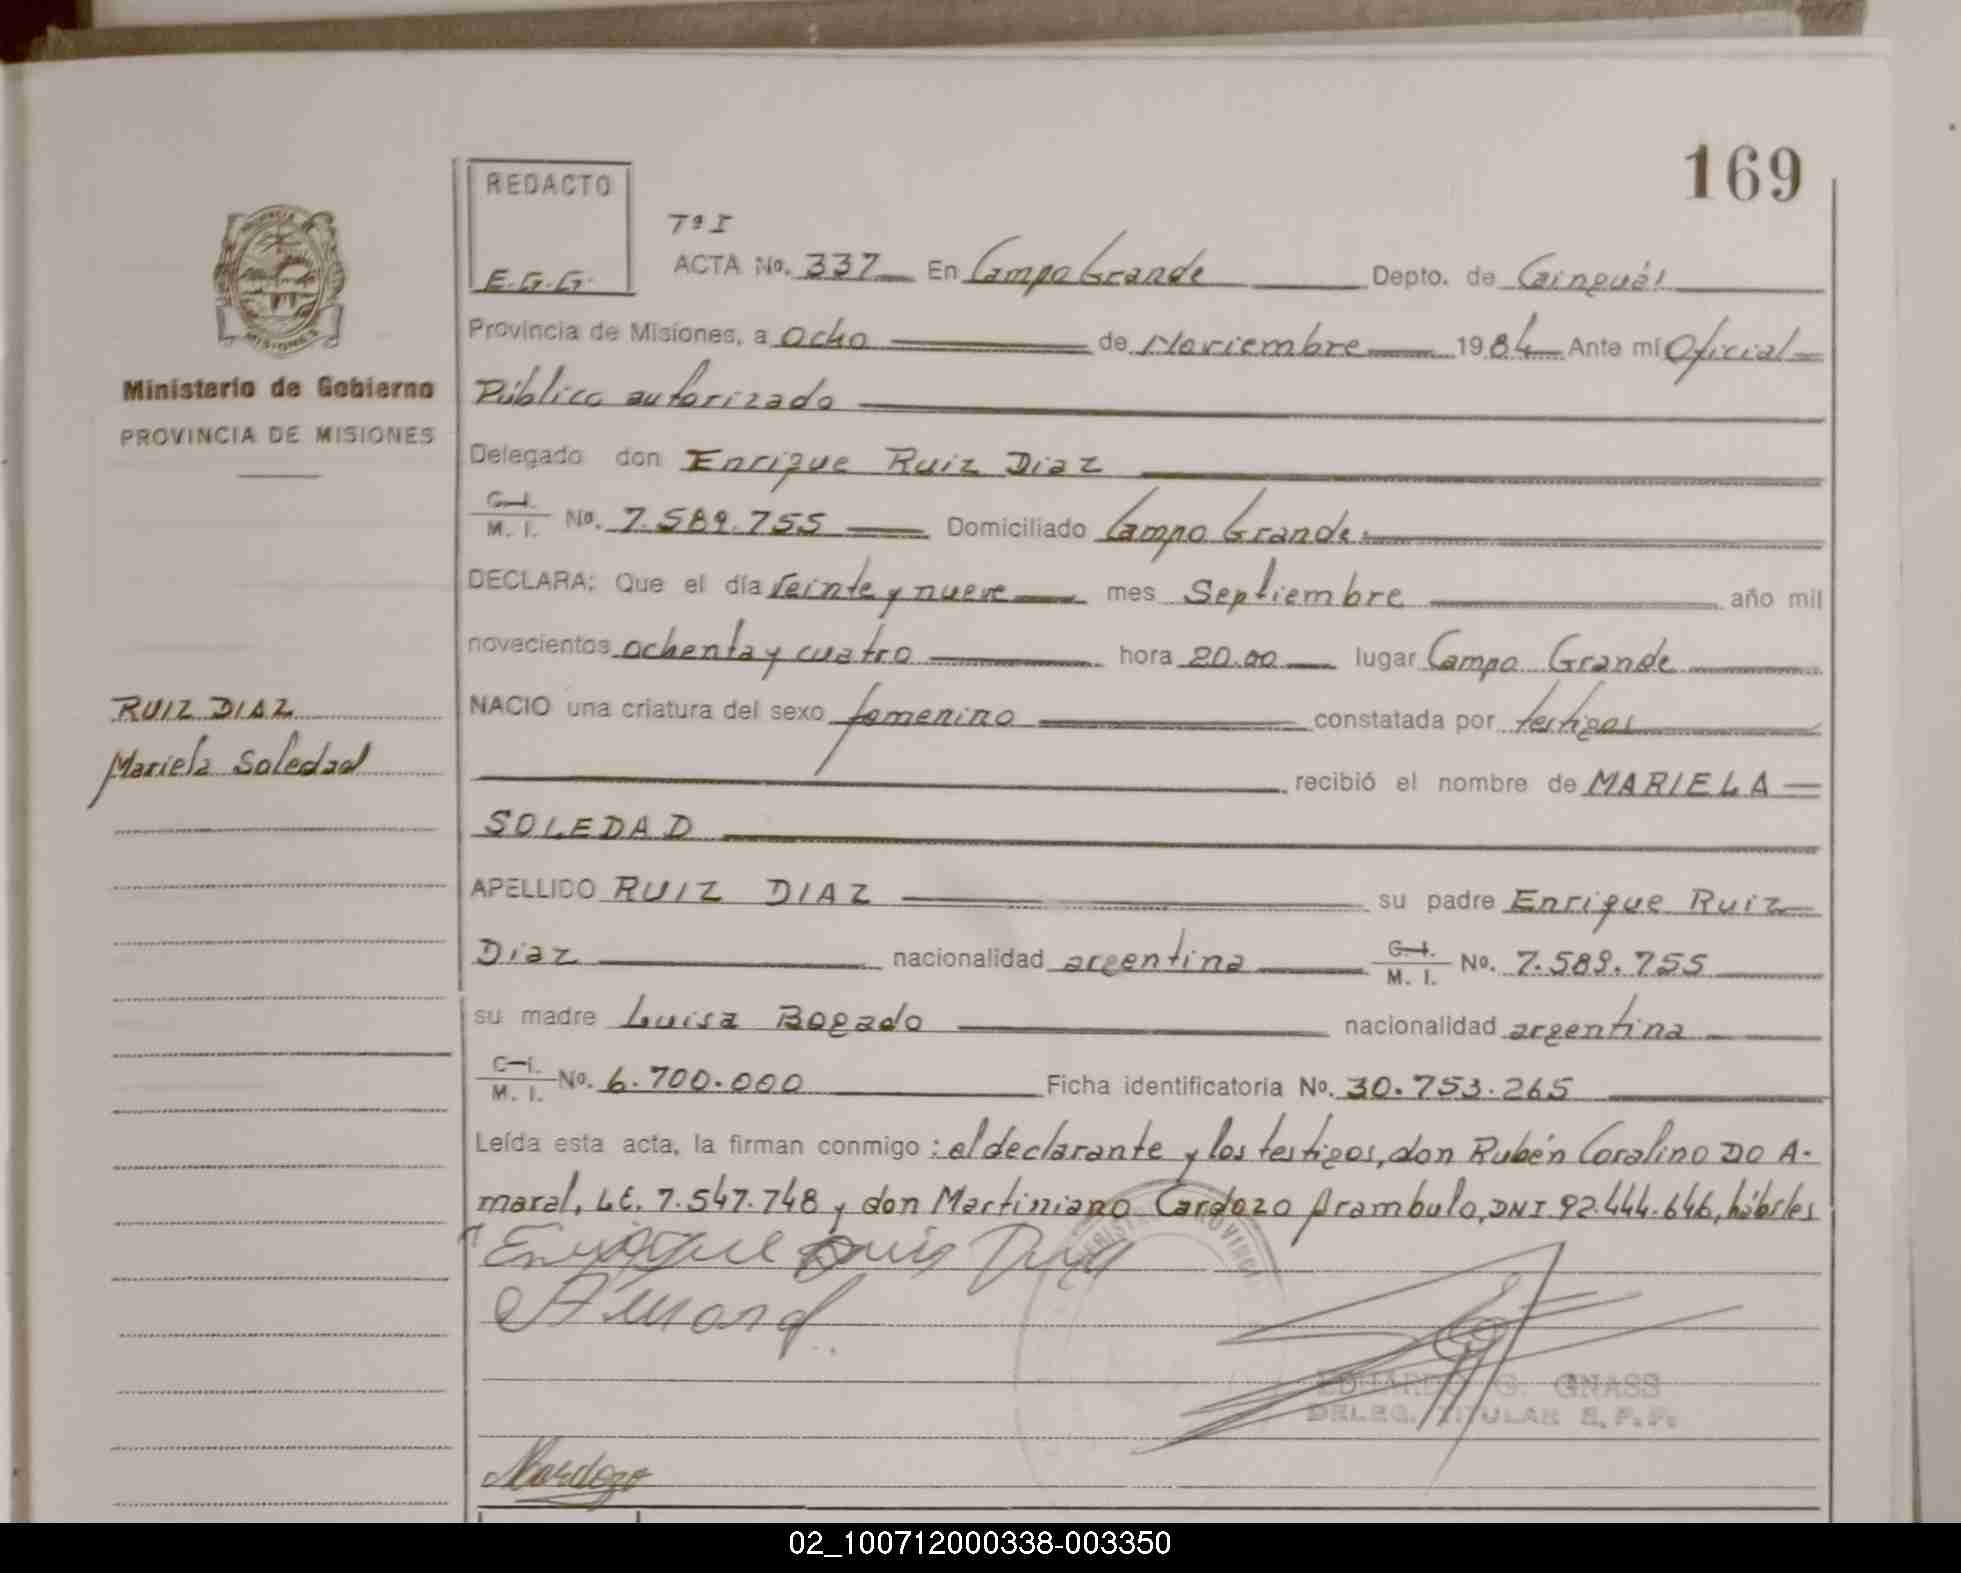 169
REDACTO
E.G.G.
Tº I
ACTA No. 337 En Campo Grande Depto. de Cainguás
Provincia de Misiones, a ocho de Noviembre 1984 Ante mí Oficial
Público autorizado
Ministerio de Gobierno
PROVINCIA DE MISIONES
Delegado don Enrique Ruiz Diaz
C.I. / M. I. No. 7.589.755 Domiciliado Campo Grande
DECLARA: Que el día veinte y nueve mes Septiembre año mil
novecientos ochenta y cuatro hora 20.00 lugar Campo Grande
NACIO una criatura del sexo femenino constatada por testigos
RUIZ DIAZ
Mariela Soledad
recibió el nombre de MARIELA
SOLEDAD
APELLIDO RUIZ DIAZ su padre Enrique Ruiz
Diaz nacionalidad argentina C.I. / M. I. No. 7.589.755
su madre Luisa Bogado nacionalidad argentina
C.I. / M. I. No. 6.700.000 Ficha identificatoria No. 30.753.265
Leída esta acta, la firman conmigo : el declarante y los testigos, don Rubén Coralino DO A-
maral, LE. 7.547.748 y don Martiniano Cardozo Arambulo, DNI 92.444.646, hábiles
Enrique Ruis Diaz
EDUARDO G. GNASS
DELEG. TITULAR
02_100712000338-003350